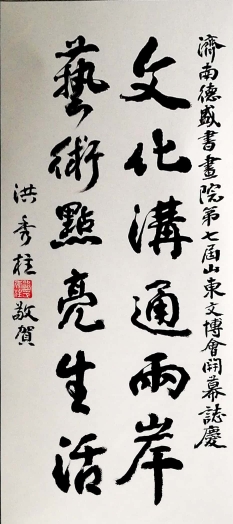 濟南德盛書畫院第七屆山東文博會開幕誌慶
文化溝通兩岸
藝術點亮生活
洪秀柱敬賀